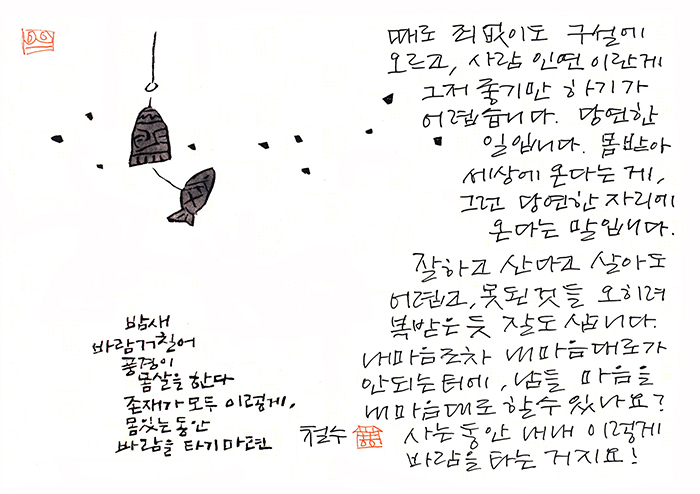 때로 죄 없이도 구설에
오르고, 사람 인연이란게
그저 좋기만 하기가
어렵습니다. 당연한
일입니다. 몸받아
세상에 온다는 게,
그런 당연한 자리에
온다는 말입니다.
잘하고 산다고 살아도
어렵고, 못된 것들 오히려
복받은 듯 잘도 삽니다.
내마음조차 내마음대로가
안되는 터에, 남들 마음을
내마음대로 할수 있나요?
사는 동안 내내 이렇게
바람을 타는 거지요!
밤새
바람거칠어
풍경이
몸살을 한다
존재가 모두 이렇게,
몸있는 동안
바람을 타기 마련
철수